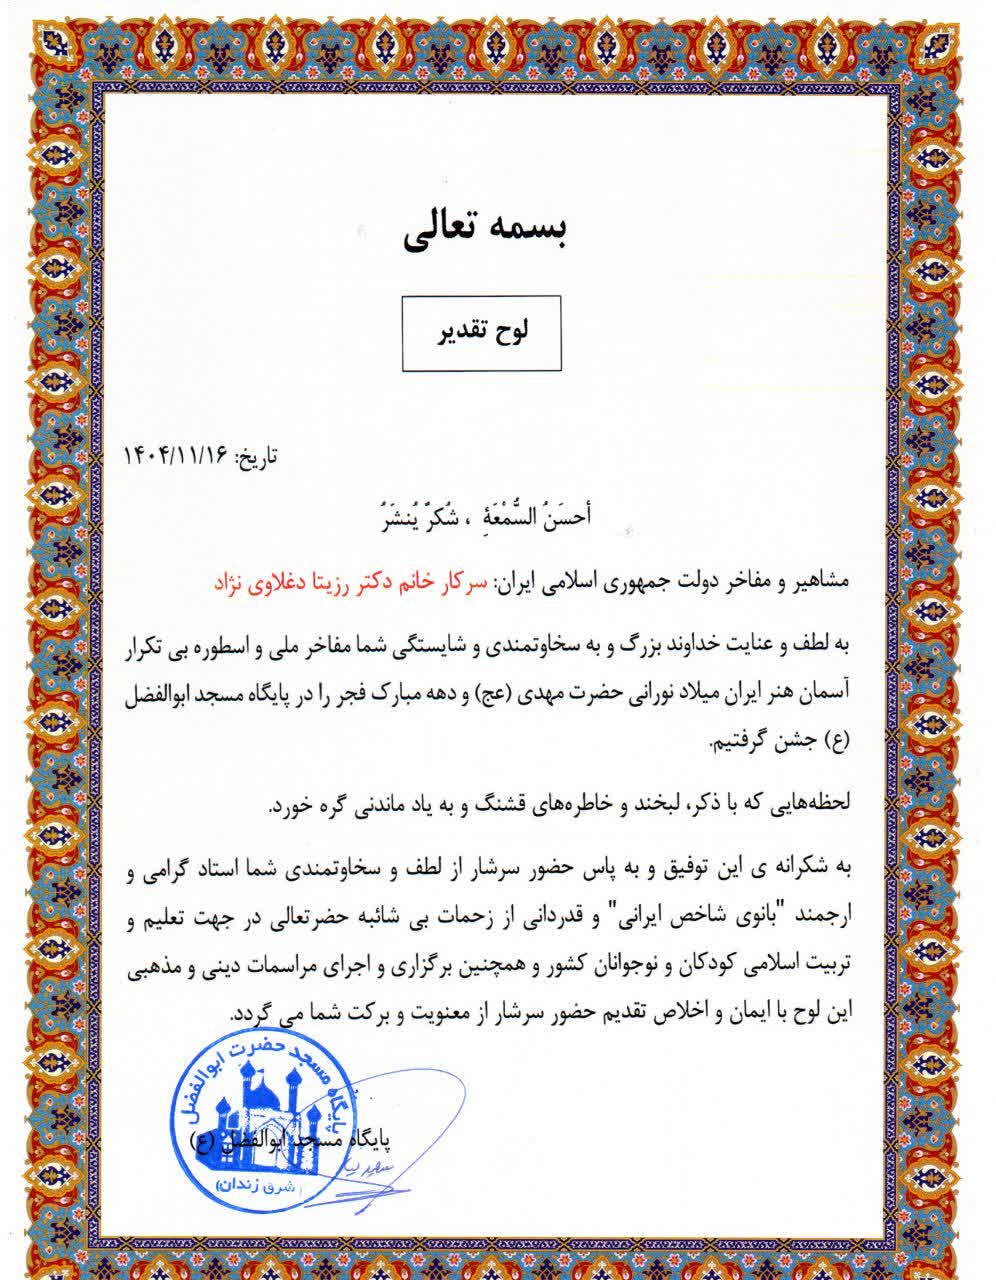 بسمه تعالی
لوح تقدیر
تاریخ: ۱۴۰۴/۱۱/۱۶
أحسَنُ السُّمْعَةِ ، شُكرٌ يُنشَرُ
مشاهیر و مفاخر دولت جمهوری اسلامی ایران: سرکار خانم دکتر رزیتا دغلاوی نژاد
به لطف و عنایت خداوند بزرگ و به سخاوتمندی و شایستگی شما مفاخر ملی و اسطوره بی تکرار
آسمان هنر ایران میلاد نورانی حضرت مهدی (عج) و دهه مبارک فجر را در پایگاه مسجد ابوالفضل
(ع) جشن گرفتیم.
لحظه‌هایی که با ذکر، لبخند و خاطره‌های قشنگ و به یاد ماندنی گره خورد.
به شکرانه ی این توفیق و به پاس حضور سرشار از لطف و سخاوتمندی شما استاد گرامی و
ارجمند "بانوی شاخص ایرانی" و قدردانی از زحمات بی شائبه حضرتعالی در جهت تعلیم و
تربیت اسلامی کودکان و نوجوانان کشور و همچنین برگزاری و اجرای مراسمات دینی و مذهبی
این لوح با ایمان و اخلاص تقدیم حضور سرشار از معنویت و برکت شما می گردد.
پایگاه مسجد حضرت ابوالفضل
پایگاه مسجد ابوالفضل (ع)
(شرق زندان)